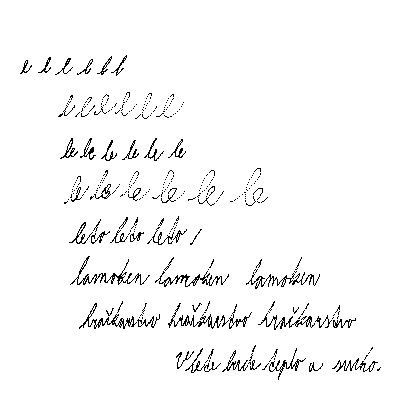 l l l l l l
l l l l l l
le le le le le le
le le le le le le
leto leto leto
lamoken lamoken lamoken
hračkarstvo hračkarstvo hračkarstvo
V lete bude teplo a sucho.